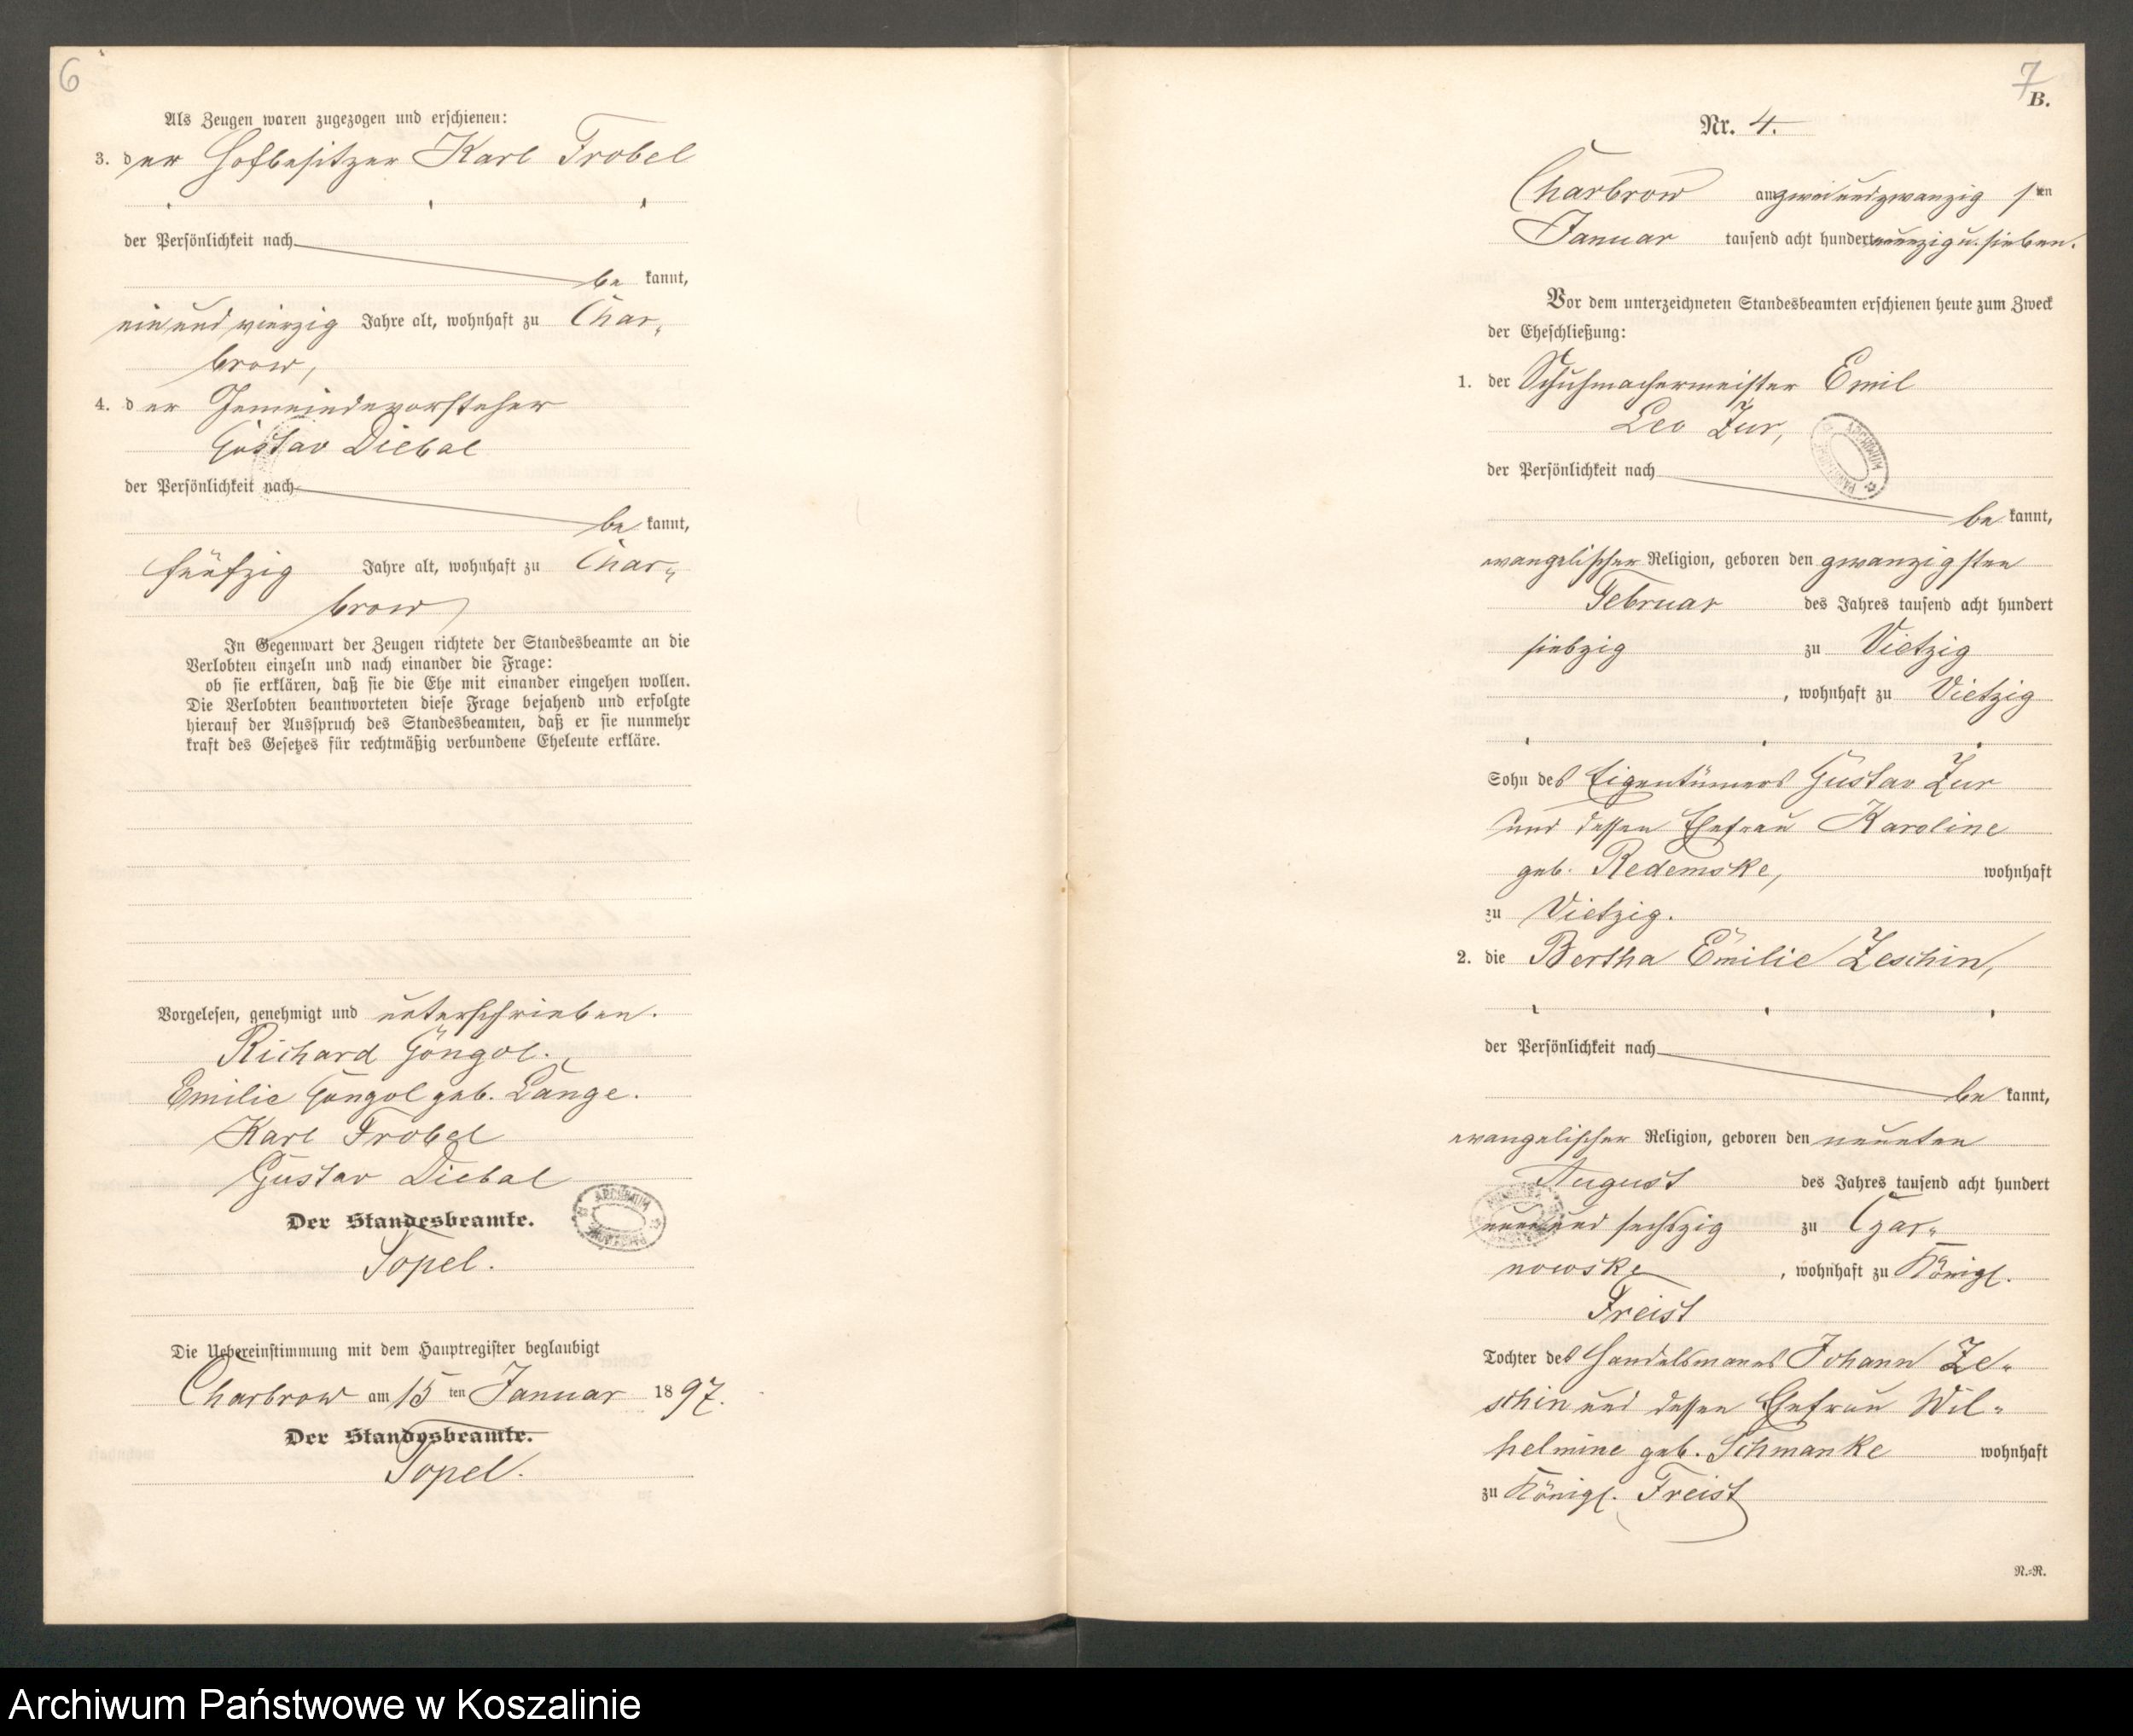 6
Als Zeugen waren zugezogen und erschienen:
3. der Hofbesitzer Karl Trobel
der Persönlichkeit nach
be kannt,
einundvierzig Jahre alt, wohnhaft zu Char„
brow,
4. der Gemeindevorsteher
Gustav Diebal
der Persönlichkeit nach
be kannt,
fünfzig Jahre alt, wohnhaft zu Char„
brow
In Gegenwart der Zeugen richtete der Standesbeamte an die
Verlobten einzeln und nach einander die Frage:
ob sie erklären, daß sie die Ehe mit einander eingehen wollen.
Die Verlobten beantworteten diese Frage bejahend und erfolgte
hierauf der Ausspruch des Standesbeamten, daß er sie nunmehr
kraft des Gesetzes für rechtmäßig verbundene Eheleute erkläre.
Vorgelesen, genehmigt und unterschrieben.
Richard Göngol.
Emilie Göngol geb. Lange.
Karl Trobel
Gustav Diebal
Der Standesbeamte.
Topel.
ARCHIWUM PAŃSTWOWE
Die Uebereinstimmung mit dem Hauptregister beglaubigt
Charbrow am 15 ten Januar 1897.
Der Standesbeamte.
Topel.
7
B.
Nr. 4.
Charbrow am zweiundzwanzig sten
Januar tausend acht hundert neunzig u. sieben.
Vor dem unterzeichneten Standesbeamten erschienen heute zum Zweck
der Eheschließung:
1. der Schuhmachermeister Emil
Leo Zur,
ARCHIWUM PAŃSTWOWE
der Persönlichkeit nach
be kannt,
evangelischer Religion, geboren den zwanzigsten
Februar des Jahres tausend acht hundert
siebzig zu Vietzig
, wohnhaft zu Vietzig
Sohn des Eigentümers Gustav Zur
und dessen Ehefrau Karoline
geb. Redemske, wohnhaft
zu Vietzig.
2. die Bertha Emilie Zeschin,
der Persönlichkeit nach
be kannt,
evangelischer Religion, geboren den neunten
August des Jahres tausend acht hundert
neun und sechszig zu Czar„
nowske , wohnhaft zu Königl.
Freist
Tochter des Handelsmanns Johann Ze„
schin und dessen Ehefrau Wil„
helmine geb. Schmanke wohnhaft
zu Königl. Freist
R.=R.
Archiwum Państwowe w Koszalinie